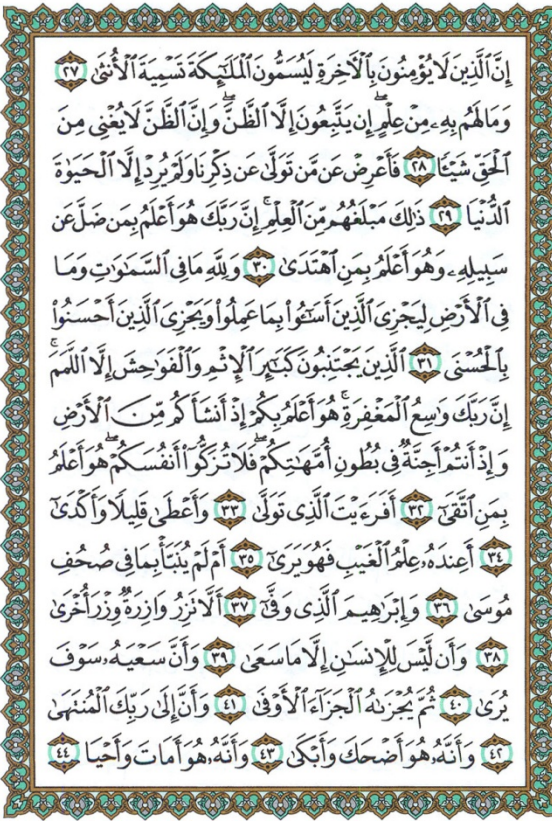 إِنَّ ٱلَّذِينَ لَا يُؤْمِنُونَ بِٱلْءَاخِرَةِ لَيُسَمُّونَ ٱلْمَلَـٰٓئِكَةَ تَسْمِيَةَ ٱلْأُنثَىٰ ٢٧
وَمَا لَهُم بِهِۦ مِنْ عِلْمٍ ۖ إِن يَتَّبِعُونَ إِلَّا ٱلظَّنَّ ۖ وَإِنَّ ٱلظَّنَّ لَا يُغْنِى مِنَ
ٱلْحَقِّ شَيْـًٔا ٢٨ فَأَعْرِضْ عَن مَّن تَوَلَّىٰ عَن ذِكْرِنَا وَلَمْ يُرِدْ إِلَّا ٱلْحَيَوٰةَ
ٱلدُّنْيَا ٢٩ ذَٰلِكَ مَبْلَغُهُم مِّنَ ٱلْعِلْمِ ۚ إِنَّ رَبَّكَ هُوَ أَعْلَمُ بِمَن ضَلَّ عَن
سَبِيلِهِۦ وَهُوَ أَعْلَمُ بِمَنِ ٱهْتَدَىٰ ٣٠ وَلِلَّهِ مَا فِى ٱلسَّمَـٰوَٰتِ وَمَا
فِى ٱلْأَرْضِ لِيَجْزِىَ ٱلَّذِينَ أَسَـٰٓـُٔوا۟ بِمَا عَمِلُوا۟ وَيَجْزِىَ ٱلَّذِينَ أَحْسَنُوا۟
بِٱلْحُسْنَى ٣١ ٱلَّذِينَ يَجْتَنِبُونَ كَبَـٰٓئِرَ ٱلْإِثْمِ وَٱلْفَوَٰحِشَ إِلَّا ٱللَّمَمَ ۚ
إِنَّ رَبَّكَ وَٰسِعُ ٱلْمَغْفِرَةِ ۚ هُوَ أَعْلَمُ بِكُمْ إِذْ أَنشَأَكُم مِّنَ ٱلْأَرْضِ
وَإِذْ أَنتُمْ أَجِنَّةٌ فِى بُطُونِ أُمَّهَـٰتِكُمْ ۖ فَلَا تُزَكُّوٓا۟ أَنفُسَكُمْ ۖ هُوَ أَعْلَمُ
بِمَنِ ٱتَّقَىٰٓ ٣٢ أَفَرَءَيْتَ ٱلَّذِى تَوَلَّىٰ ٣٣ وَأَعْطَىٰ قَلِيلًا وَأَكْدَىٰٓ
٣٤ أَعِندَهُۥ عِلْمُ ٱلْغَيْبِ فَهُوَ يَرَىٰٓ ٣٥ أَمْ لَمْ يُنَبَّأْ بِمَا فِى صُحُفِ
مُوسَىٰ ٣٦ وَإِبْرَٰهِيمَ ٱلَّذِى وَفَّىٰٓ ٣٧ أَلَّا تَزِرُ وَازِرَةٌ وِزْرَ أُخْرَىٰ
٣٨ وَأَن لَّيْسَ لِلْإِنسَـٰنِ إِلَّا مَا سَعَىٰ ٣٩ وَأَنَّ سَعْيَهُۥ سَوْفَ
يُرَىٰ ٤٠ ثُمَّ يُجْزَىٰهُ ٱلْجَزَآءَ ٱلْأَوْفَىٰ ٤١ وَأَنَّ إِلَىٰ رَبِّكَ ٱلْمُنتَهَىٰ
٤٢ وَأَنَّهُۥ هُوَ أَضْحَكَ وَأَبْكَىٰ ٤٣ وَأَنَّهُۥ هُوَ أَمَاتَ وَأَحْيَا ٤٤